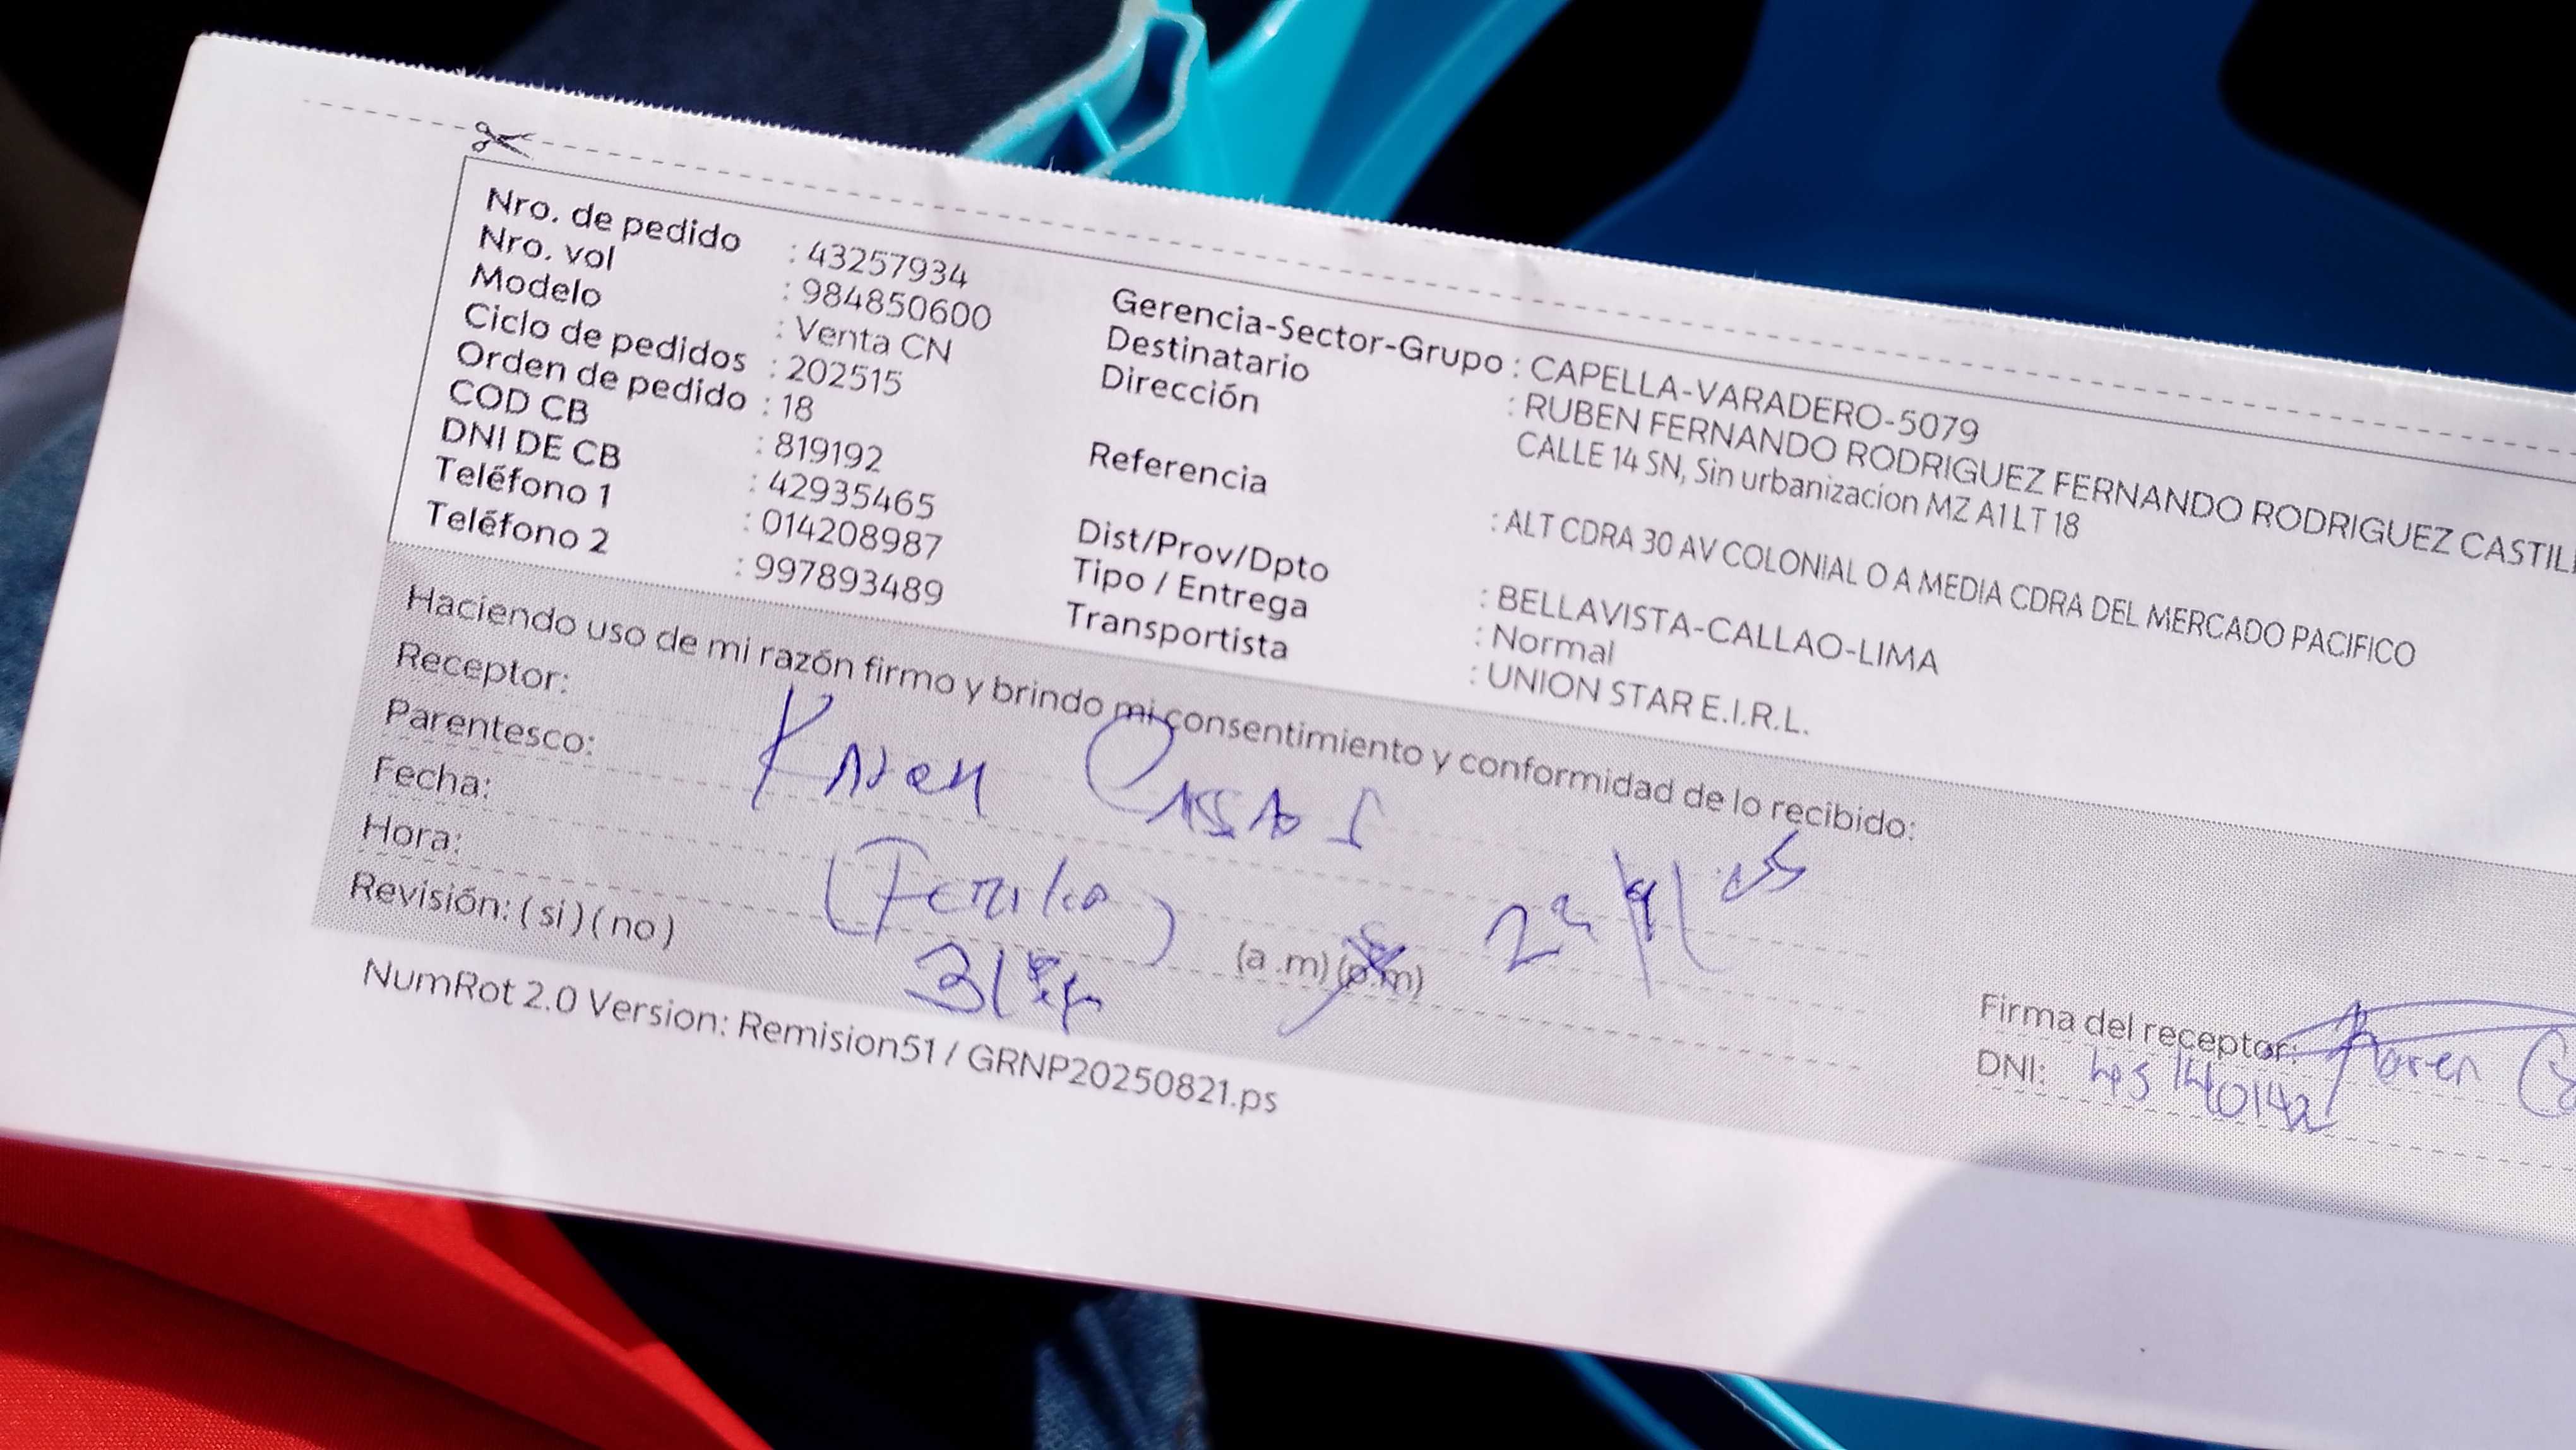 Nro. de pedido : 43257934
Nro. vol : 984850600
Modelo : Venta CN
Ciclo de pedidos : 202515
Orden de pedido : 18
COD CB : 819192
DNI DE CB : 42935465
Teléfono 1 : 014208987
Teléfono 2 : 997893489
Gerencia-Sector-Grupo : CAPELLA-VARADERO-5079
Destinatario : RUBEN FERNANDO RODRIGUEZ FERNANDO RODRIGUEZ
Dirección CALLE 14 SN, Sin urbanizacion MZ A1 LT 18
Referencia : ALT CDRA 30 AV COLONIAL O A MEDIA CDRA DEL MERCADO PACIFICO
Dist/Prov/Dpto : BELLAVISTA-CALLAO-LIMA
Tipo / Entrega : Normal
Transportista : UNION STAR E.I.R.L.
Haciendo uso de mi razón firmo y brindo mi consentimiento y conformidad de lo recibido:
Receptor: Karen
Parentesco:
Fecha:
Hora: (a .m) (p.m)
Revisión: ( si ) ( no )
Firma del receptor: Karen
DNI:
NumRot 2.0 Version: Remision51 / GRNP20250821.ps